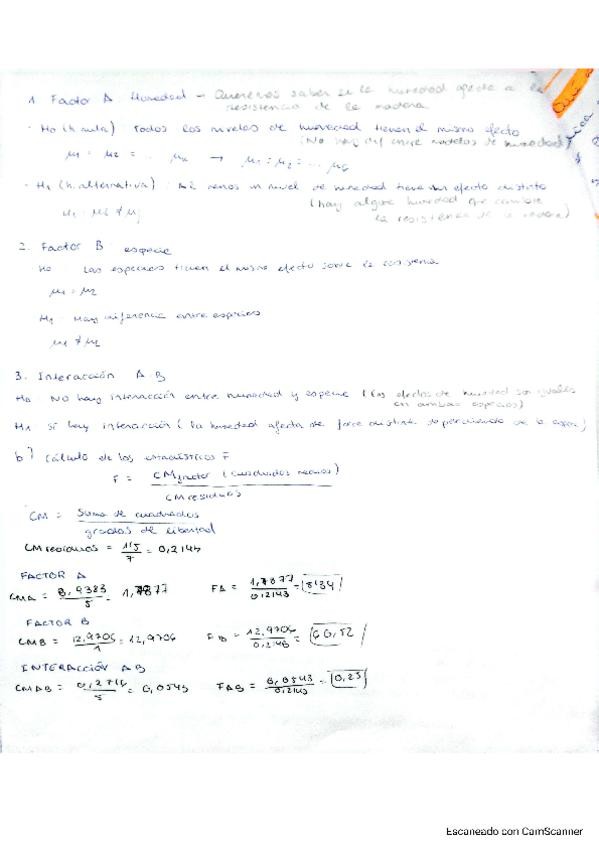 1. Factor A Humedad - Queremos saber si la humedad afecta a la
resistencia de la madera
· Ho (h. nula) Todos los niveles de humedad tienen el mismo efecto
(No hay dif entre niveles de humedad)
μ1 = μ2 = ... μk → μ1 = μ2 = ... μ6
· H1 (h. alternativa) : Al menos un nivel de humedad tiene un efecto distinto
(hay alguna humedad que cambie
la resistencia de la madera)
H1 : μi ≠ μj
2. Factor B especie
Ho Las especies tienen el mismo efecto sobre la
μ1 = μ2
H1 Hay diferencia entre especies
μ1 ≠ μ2
3. Interacción A-B
Ho No hay interacción entre humedad y especie (los efectos de humedad son iguales
en ambas especies)
H1 Sí hay interacción (la humedad afecta de forma distinta dependiendo de la especie)
b) Cálculo de los estadísticos F
F = CM factor (cuadrados medios)
CM residuos
CM = Suma de cuadrados
grados de libertad
CM residuos = 1,5/7 = 0,2143
FACTOR A
CMA = 8,9383/5 = 1,7877 FA = 1,7877/0,2143 = 8,34
FACTOR B
CMB = 12,9706/1 = 12,9706 FB = 12,9706/0,2143 = 60,52
INTERACCIÓN AB
CMAB = 0,2716/5 = 0,0543 FAB = 0,0543/0,2143 = 0,25
Escaneado con CamScanner